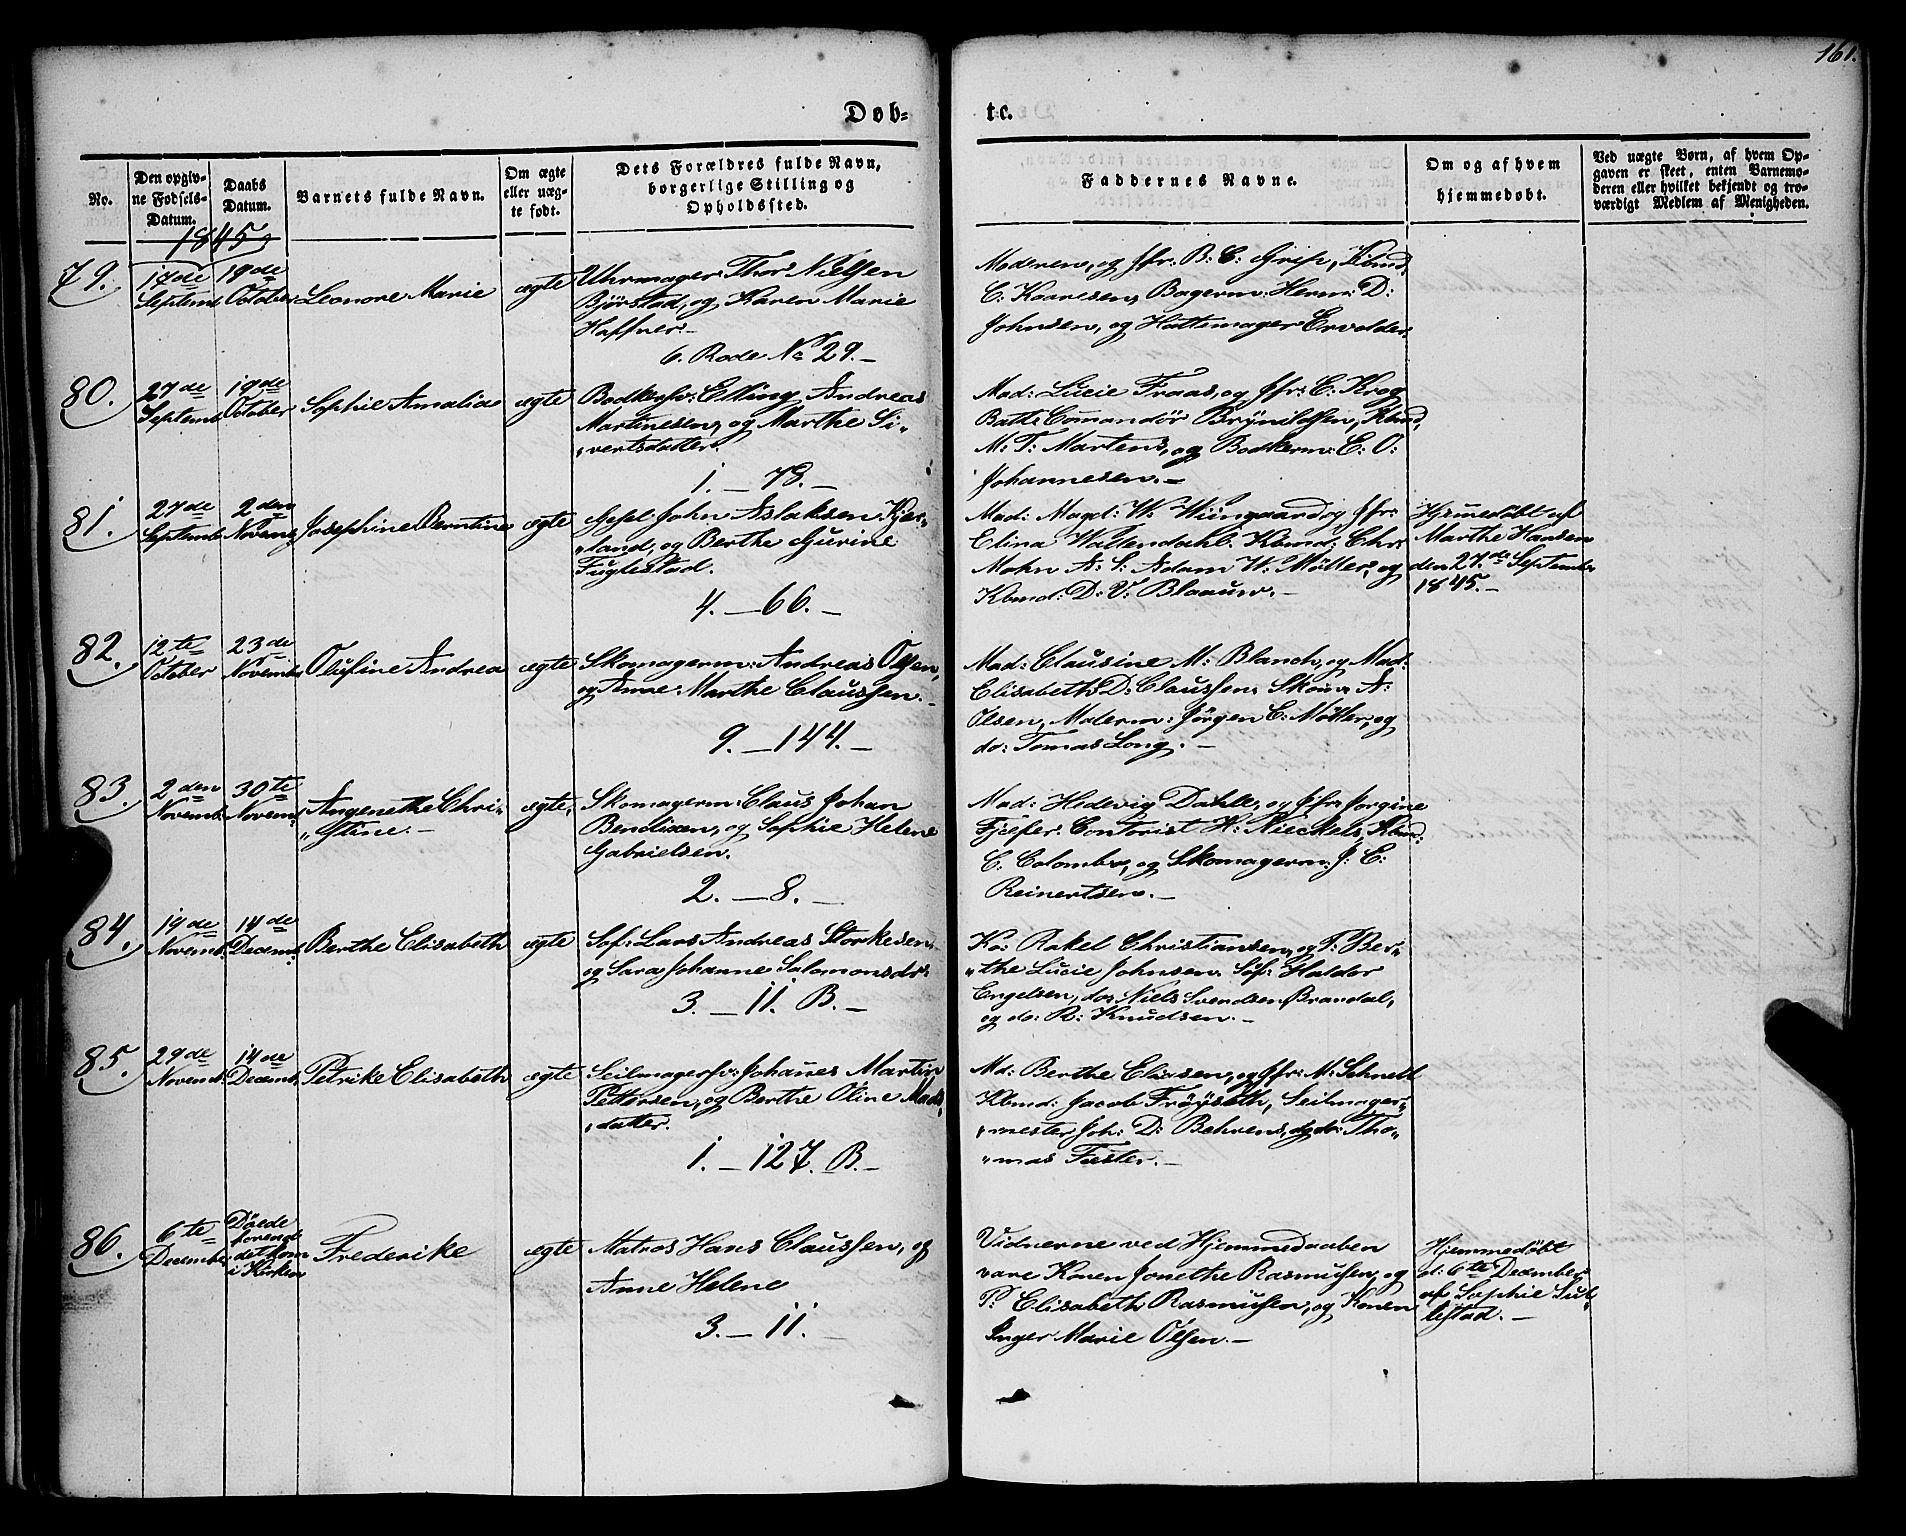 161.
Døb= te.
No.
Den opgiv-
ne Fødsels-
Datum.
Daabs
Datum.
Barnets fulde Navn.
Om ægte
eller uæg-
te født.
Dets Forældres fulde Navn,
borgerlige Stilling og
Opholdssted.
Faddernes Navne.
Om og af hvem
hjemmedøbt.
Ved uægte Børn, af hvem Op-
gaven er skeet, enten Barnemo-
deren eller hvilket bekjendt og tro-
værdigt Medlem af Menigheden.
1845
79.
17de
Septemb
19de
October
Leonore Marie
ægte
Uhrmager: Thor: Nielsen
Bjørstad, og Karen Marie
Haffner.-
6. Rode No 29.-
Moderen, og Jfr: B: C: Grip, Kbmd
C. Kaaresen, Bagerm: Herm: D:
Johnsen, og Hattemager Ervolder.
80.
27de
Septemb
19de
October
Sophie Amalia
ægte
Bødkersv: Elling Andreas
Martinesen, og Marthe Si-
vertsdatter.
1. - 78. -
Mad: Lucie Fraas, og Jfr: C: Krog
Batt: Comandør Brynildsen, Kbmd,
M: T: Martens, og Bødkerm: C: O:
Johannesen.-
81.
27de
Septemb
2den
Novemb
Josephine Berntine
ægte
Gesel John Aslaksen Kjer-
land, og Berthe Gurine
Fuglestad.
4. - 66. -
Mad: Magel: W: Wiingaard, og Jfr:
Elina Waltendahl. Kbmd: Chr:
Mohn A: S: Adam W: Møller, og
Kbmd: D: V: Blaauw.-
Hjemedøbt af
Marthe Hansen
den 27de September
1845.-
82.
12te
October
23de
Novemb
Olufine Andrea
ægte
Skomagerm: Andreas Olsen,
og Anne Marthe Claussen.-
9. - 144. -
Mad: Clausine M: Blanch, og Mad:
Elisabeth D: Claussen. Skom: A:
Olsen, Malerm: Jørgen C: Møller, og
do: Tomas Long.-
83.
2den
Novemb
30te
Novemb
Angenethe Chri-
stine.-
ægte
Skomagerm: Claus Johan
Bendixen, og Sophie Helene
Gabrielsen.
2. - 8. -
Mad: Hedevig Dahle, og Jfr: Jørgine
Fjelfer. Contorist H: Nieckels, Kbm:
C. Colombo, og Skomagerm: J: C:
Reinertsen.-
84.
19de
Novemb.
14de
Decemb
Berthe Elisabeth
ægte
Søf: Lars Andreas Storkesen
og Sara Johanne Salomonsdr:
3. - 11. B.-
Ko: Rakel Christiansen, og P: Ber-
the Lucie Johnsen. Søf: Haldor
Engelsen, do: Niels Svendsen Brandal,
og do: R: Knudsen.-
85.
29de
Novemb
14de
Decemb.
Petrike Elisabeth
ægte
Seilmagersv: Johanes Martin
Pettersen, og Berthe Oline Mads-
datter.
1. - 127. B.-
Md: Berthe Clasen, og Jfr: M: Schnell
Kbmd: Jacob Frøyseth, Seilmager-
mester Joh: D: Behrens, og do: Tho-
mas Faster.-
86.
6te
December
Døede
forend
det kom
i Kirken
Frederike
ægte
Matros Hans Claussen, og
Anne Helene
3. - 11. -
Vidnerne ved Hjemmedaaben
vare Konen Jonethe Rasmussen, og
P: Elisabeth Rasmussen, og Konen
Inger Marie Olsen.-
Hjemmedøbt
d: 6te December
af Sophie Sul-
lestad.-